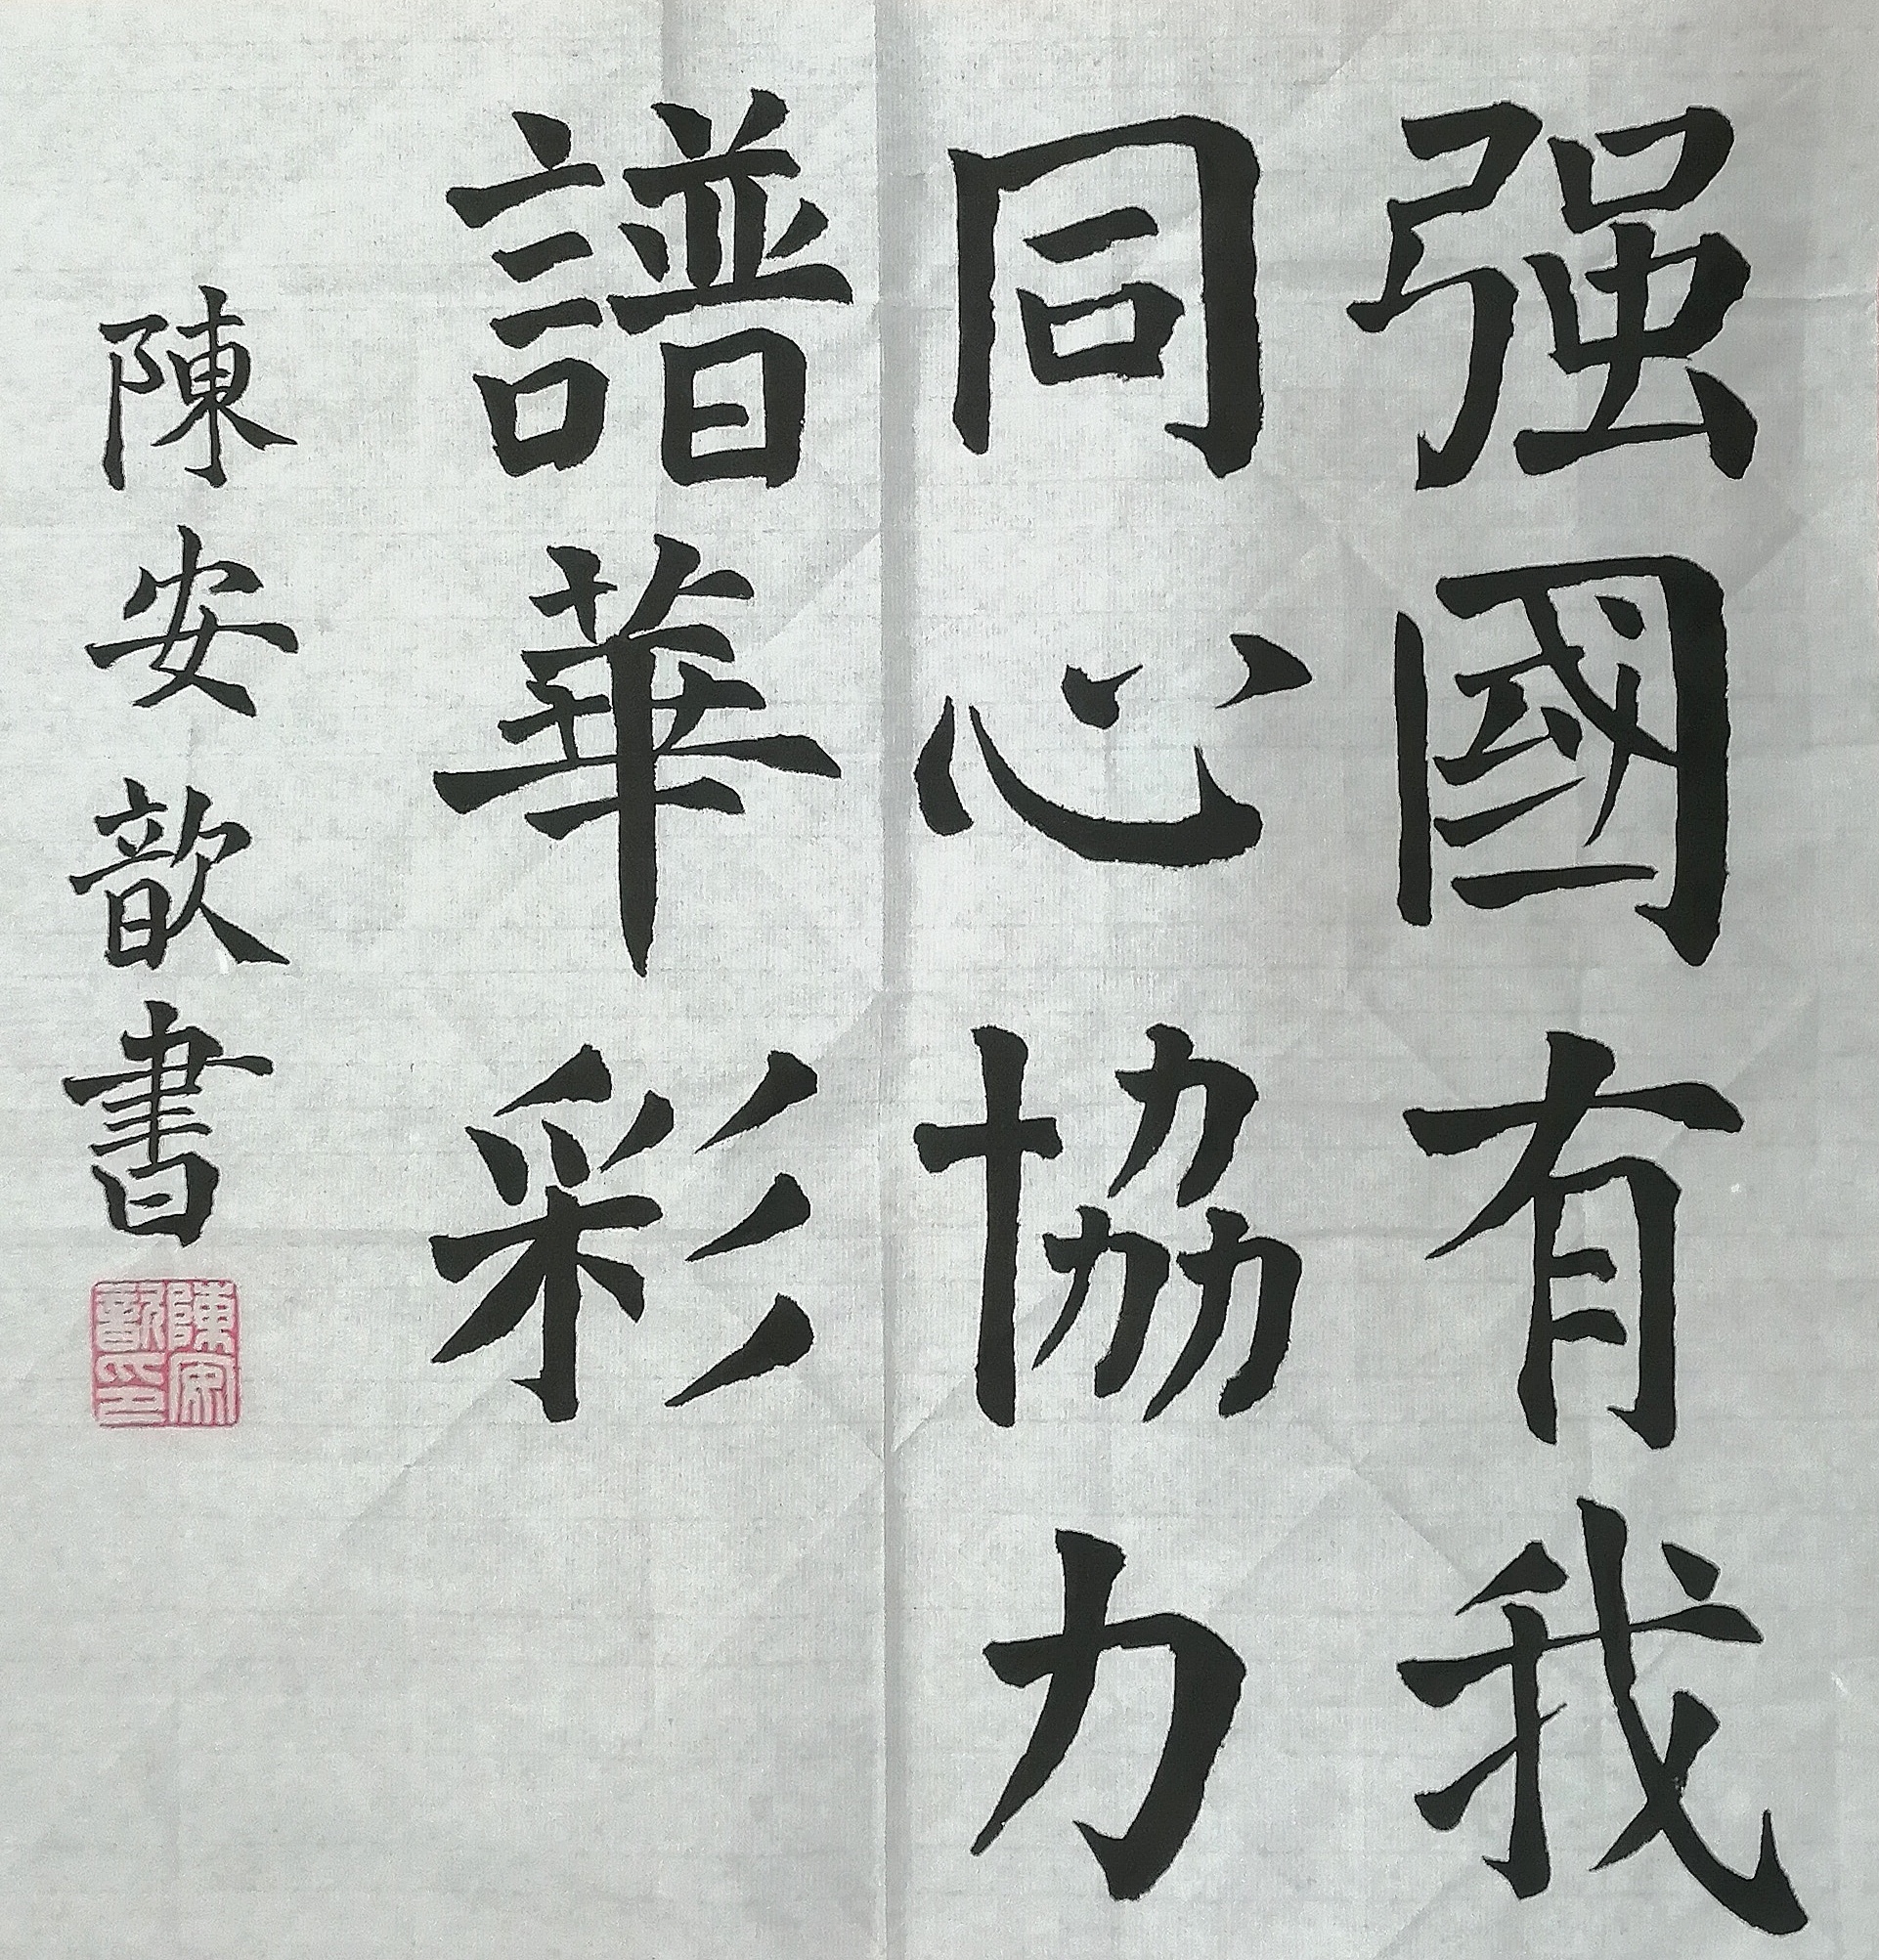 强國有我
同心協力
譜華彩
陳安歆書
陳安歆印